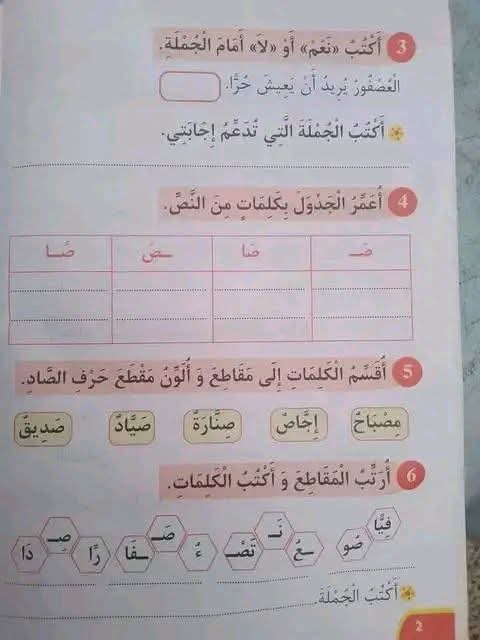 3 أَكْتُبُ «نَعَمْ» أَوْ «لَا» أَمَامَ الْجُمْلَةِ.
الْعُصْفُورُ يُرِيدُ أَنْ يَعِيشَ حُرًّا.
أَكْتُبُ الْجُمْلَةَ الَّتِي تُدَعِّمُ إِجَابَتِي.
4 أُعَمِّرُ الْجَدْوَلَ بِكَلِمَاتٍ مِنَ النَّصِّ.
صَـ صَا ـصَ صَـا
5 أُقَسِّمُ الْكَلِمَاتِ إِلَى مَقَاطِعَ وَ أُلَوِّنُ مَقْطَعَ حَرْفِ الصَّادِ.
مِصْبَاحٌ إِجَّاصٌ صِنَّارَةٌ صَيَّادٌ صَدِيقٌ
6 أُرَتِّبُ الْمَقَاطِعَ وَ أَكْتُبُ الْكَلِمَاتِ.
فِيًّا صُو ـعُ نَـ تَصْـ ءُ صَـ ـفَا رًا صِـ دَا
أَكْتُبُ الْجُمْلَةَ.
2